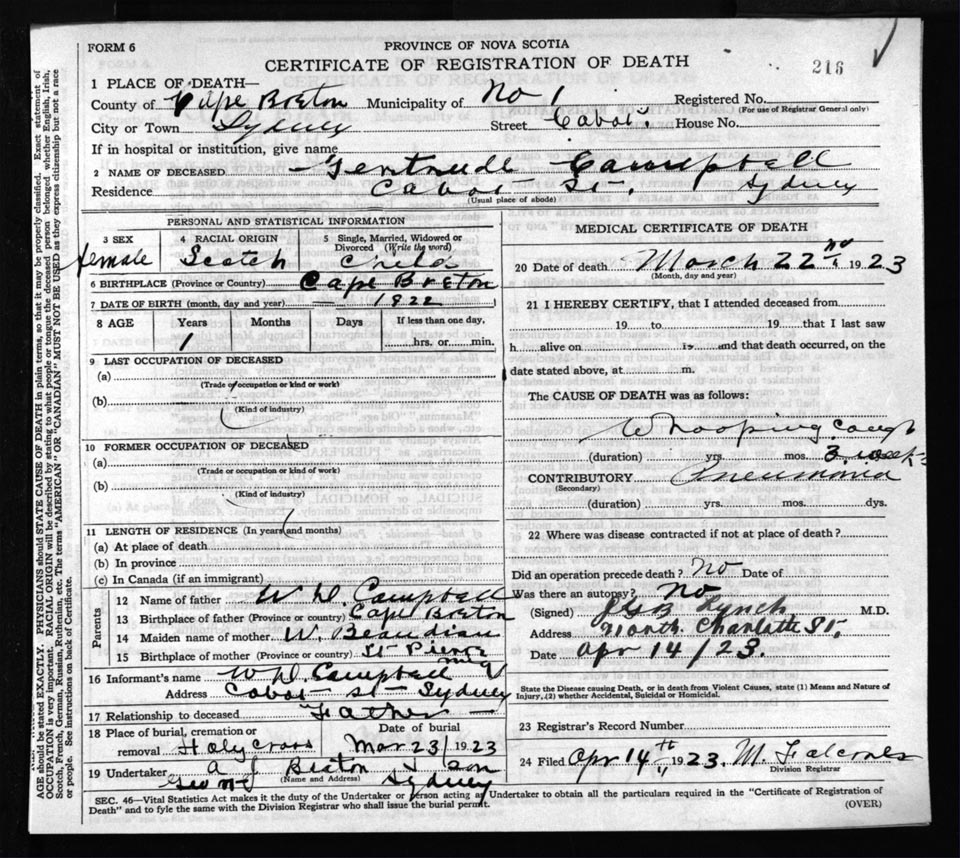 FORM 6
PROVINCE OF NOVA SCOTIA
CERTIFICATE OF REGISTRATION OF DEATH
216
1 PLACE OF DEATH—
County of Cape Breton Municipality of No 1 Registered No.
(For use of Registrar General only)
City or Town Sydney Street Cabot House No.
If in hospital or institution, give name
2 NAME OF DECEASED Gertrude Campbell
Residence Cabot St. Sydney
(Usual place of abode)
PERSONAL AND STATISTICAL INFORMATION
3 SEX 4 RACIAL ORIGIN 5 Single, Married, Widowed or Divorced (Write the word)
female Scotch Child
6 BIRTHPLACE (Province or Country) Cape Breton
7 DATE OF BIRTH (month, day and year) — 1822
8 AGE Years Months Days If less than one day,
1 hrs. or min.
9 LAST OCCUPATION OF DECEASED
(a)
(Trade or occupation or kind or work)
(b)
(Kind of industry)
10 FORMER OCCUPATION OF DECEASED
(a)
(Trade or occupation or kind or work)
(b)
(Kind of industry)
11 LENGTH OF RESIDENCE (In years and months)
(a) At place of death
(b) In province
(c) In Canada (if an immigrant)
Parents
12 Name of father W D. Campbell
13 Birthplace of father (Province or country) Cape Breton
14 Maiden name of mother W. Beaudian
15 Birthplace of mother (Province or country) St Pierre Miq
16 Informant's name W D. Campbell
Address Cabot St Sydney
17 Relationship to deceased Father
18 Place of burial, cremation or removal Holy Cross Date of burial Mar 23/1923
19 Undertaker A J Beaton & Son
(Name and Address)
Sydney
MEDICAL CERTIFICATE OF DEATH
20 Date of death March 22nd 1923
(Month, day and year)
21 I HEREBY CERTIFY, that I attended deceased from
19 to 19 that I last saw
h alive on 19 and that death occurred, on the
date stated above, at m.
The CAUSE OF DEATH was as follows:
Whooping cough
(duration) yrs. mos. 3 weeks
CONTRIBUTORY Pneumonia
(Secondary)
(duration) yrs. mos. dys.
22 Where was disease contracted if not at place of death?
Did an operation precede death? No Date of
Was there an autopsy? No
(Signed) Lynch M.D.
Address North Charlotte St.
Date Apr 14/23.
State the Disease causing Death, or in death from Violent Causes, state (1) Means and Nature of Injury, (2) whether Accidental, Suicidal or Homicidal.
23 Registrar's Record Number
24 Filed Apr 14th 1923. M.
Division Registrar
SEC. 46—Vital Statistics Act makes it the duty of the Undertaker or person acting as Undertaker to obtain all the particulars required in the "Certificate of Registration of
Death" and to fyle the same with the Division Registrar who shall issue the burial permit.
(OVER)
AGE should be stated EXACTLY. PHYSICIANS should STATE CAUSE OF DEATH in plain terms, so that it may be properly classified. Exact statement of
OCCUPATION is very important. RACIAL ORIGIN will be described by stating to what people or tongue the deceased person belonged whether English, Irish,
Scotch, French, German, Russian, Ruthenian, etc. The terms "AMERICAN" OR "CANADIAN" MUST NOT BE USED as they express citizenship but not a race
or people. See instructions on back of Certificate.